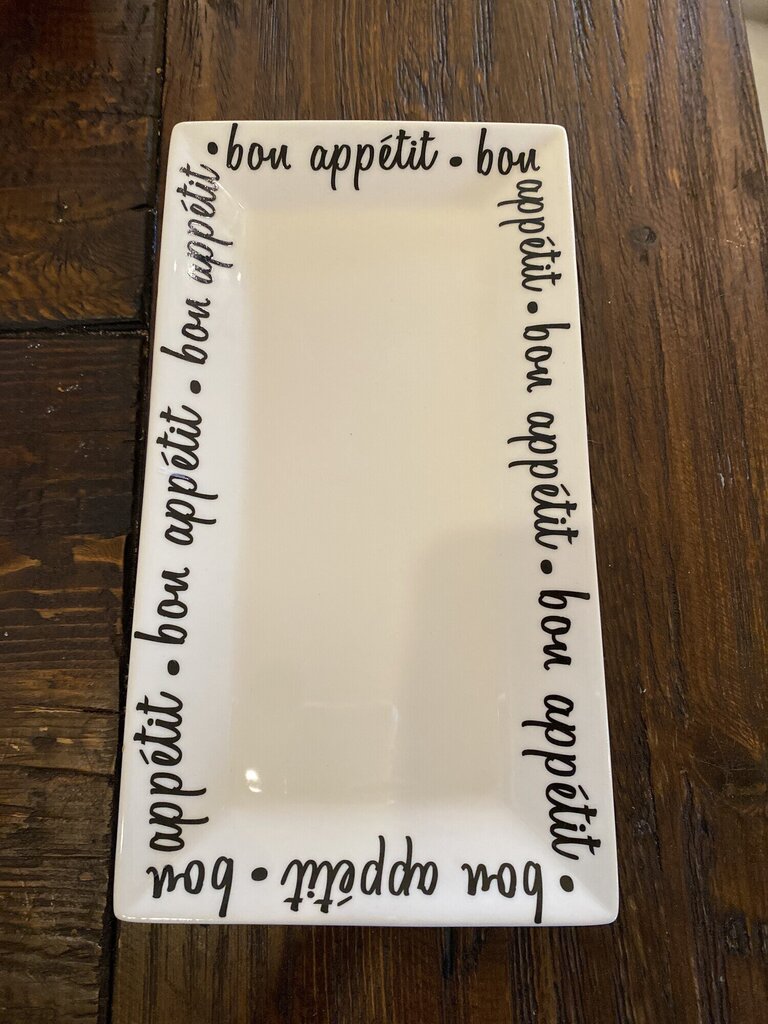 • bon appétit • bon
appétit • bon appétit • bon appétit
• bon appétit • bon
appétit • bon appétit • bon appétit